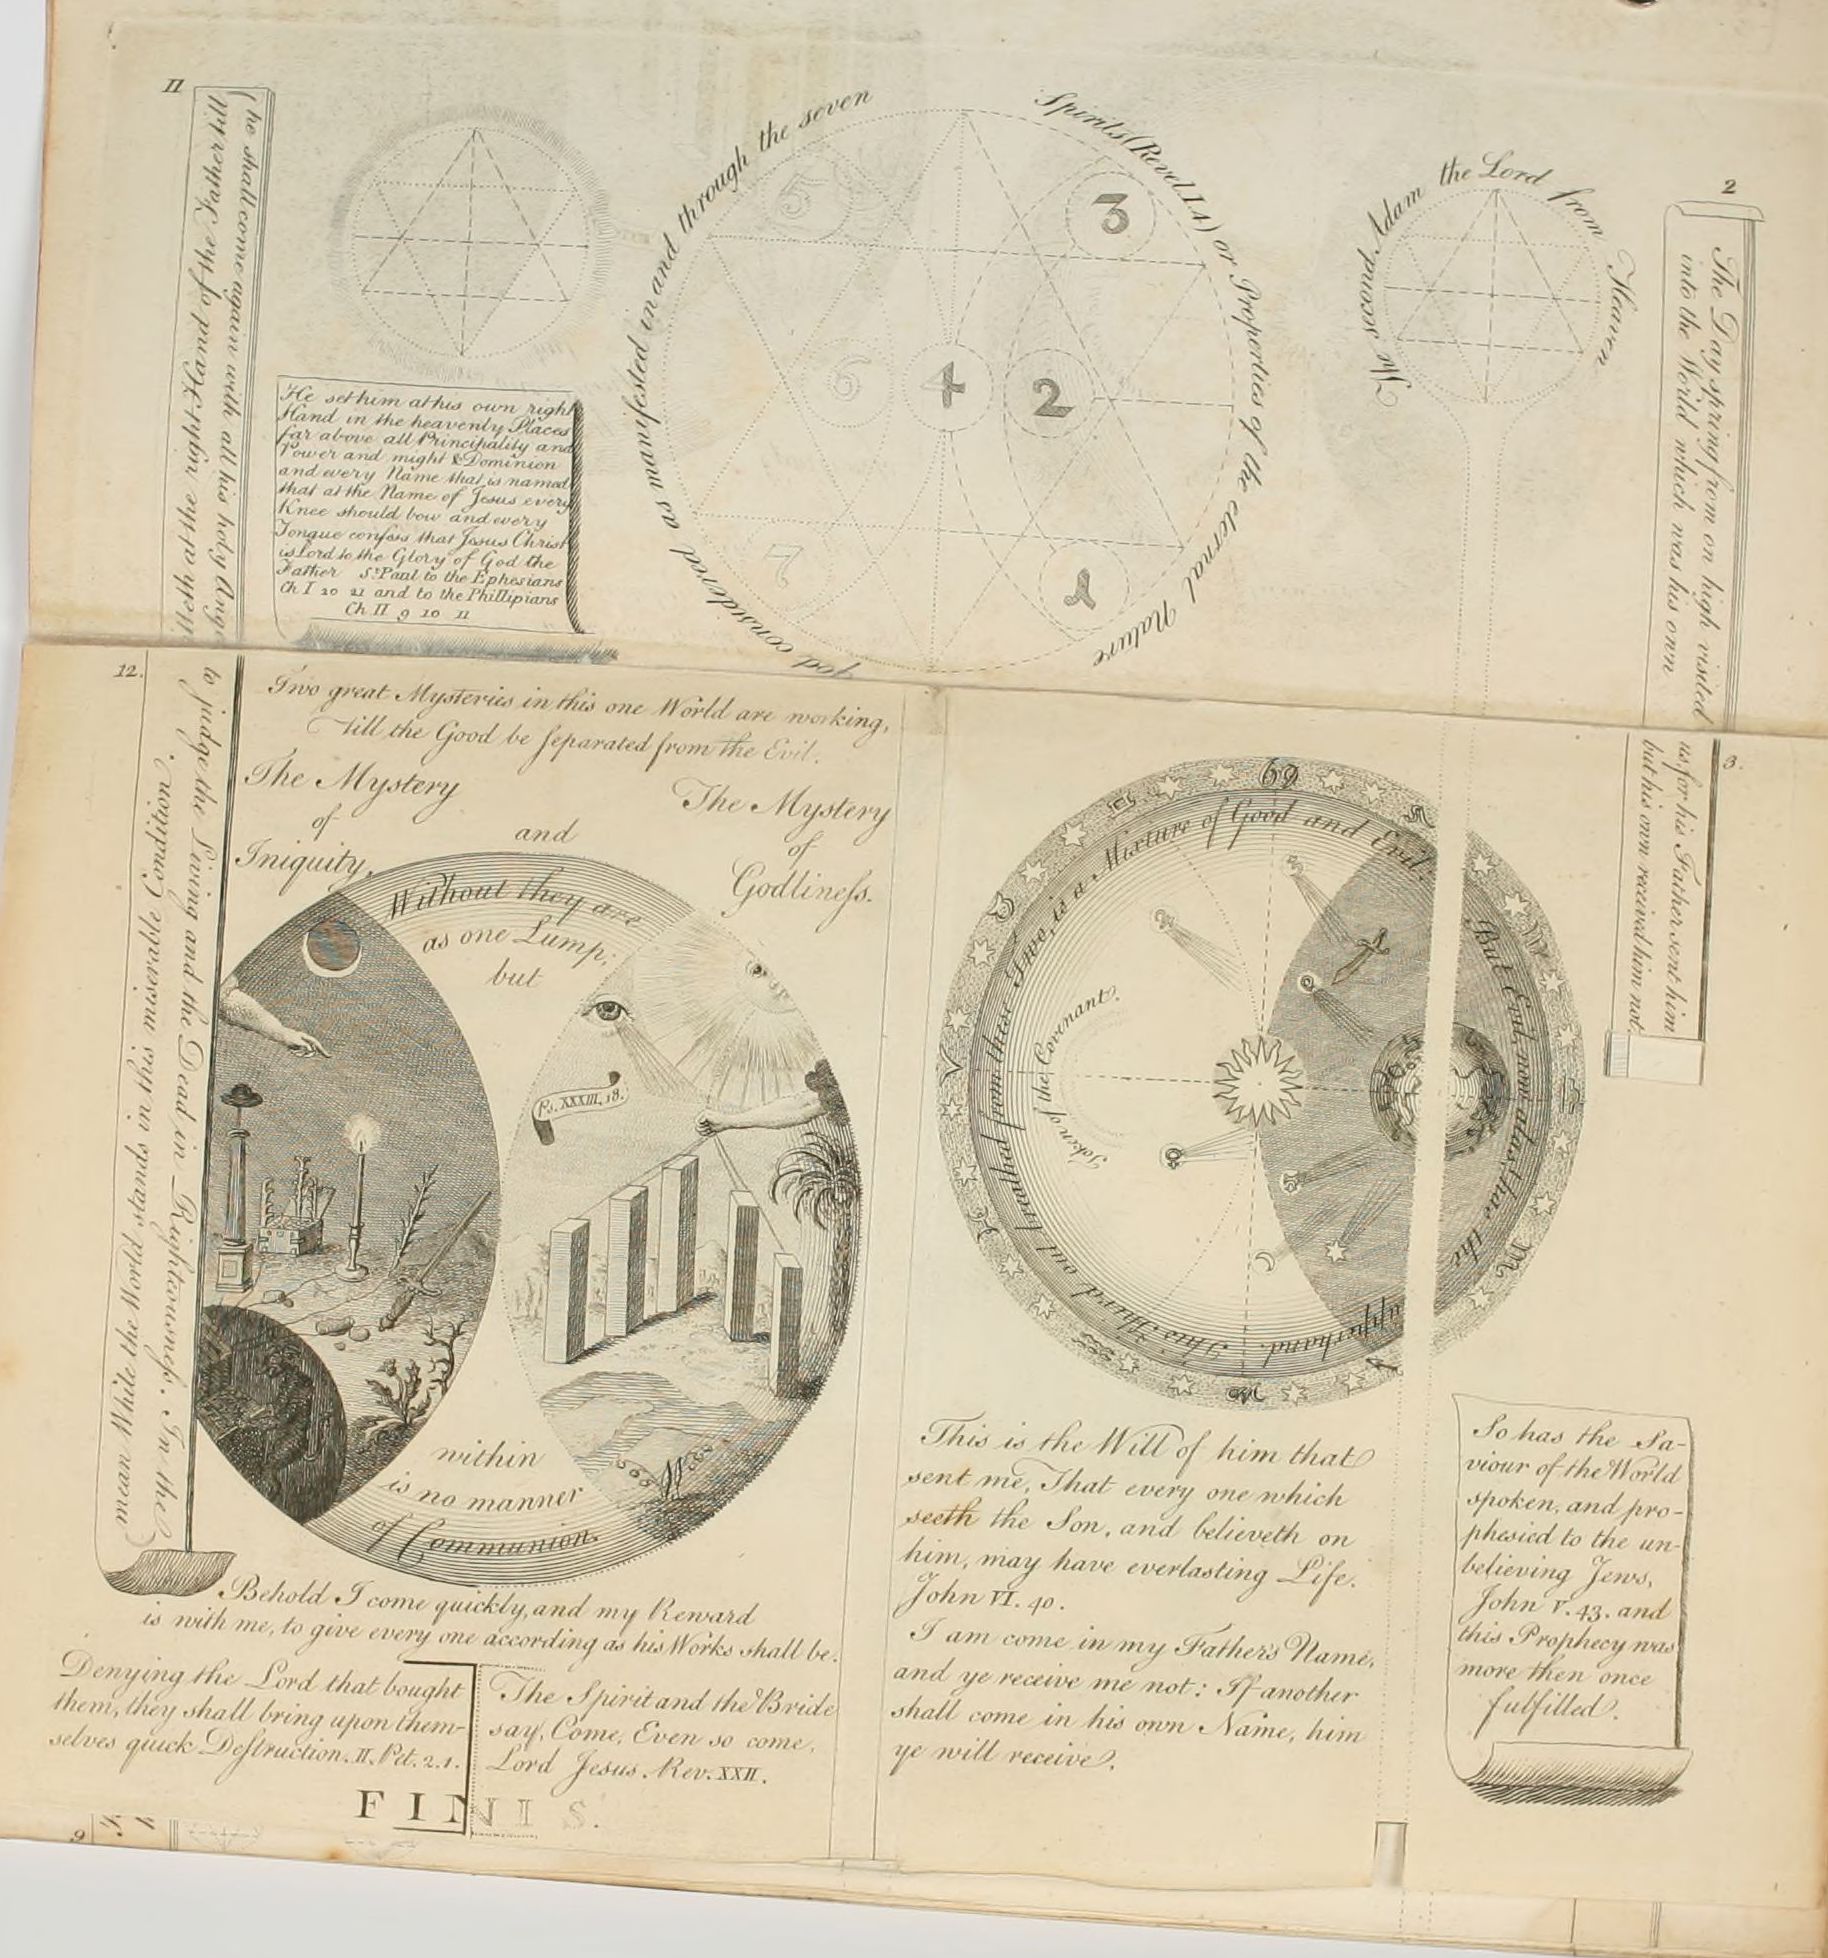 II
(he shall come again with all his holy Ang
My Father
at the right Hand of the Father
He set him at his own right
Hand in the heavenly Places
far above all Principality and
Power and might & Dominion
and every Name that is named
that at the Name of Jesus every
Knee should bow and every
Tongue confess that Jesus Christ
is Lord to the Glory of God the
Father St Paul to the Ephesians
Ch I 20 21 and to the Phillipians
Ch II 9 10 11
god considered as manifested in and through the seven
Spirits (Revel. I.4) or Properties of the eternal Nature
5
3
6
4
2
7
1
The second Adam the Lord from Heaven
2
The Day spring from on high visited
into the World which was his own
3.
us for his Father sent him
but his own received him not.
12.
to judge the Living and the Dead in Righteousness. In the
mean While the World stands in this miserable Condition.
Two great Mysteries in this one World are working,
till the Good be separated from the Evil.
The Mystery
of
Iniquity,
and
The Mystery
of
Godliness.
Without they are
as one Lump;
but
Ps. XXXIII. 18.
within
is no manner
of Communion.
Behold I come quickly, and my Reward
is with me, to give every one according as his Works shall be.
Denying the Lord that bought
them, they shall bring upon them-
selves quick Destruction. II. Pet. 2. 1.
The Spirit and the Bride
say, Come, Even so come,
Lord Jesus. Rev. XXII.
FINIS.
This Third out breathed from these Two, is a Mixture of Good and Evil.
But Evil now alas! has the
upperhand.
Token of the Covenant.
This is the Will of him that
sent me, That every one which
seeth the Son, and believeth on
him, may have everlasting Life.
John VI. 40.
I am come in my Father's Name,
and ye receive me not: If another
shall come in his own Name, him
ye will receive.
So has the Sa-
viour of the World
spoken, and pro-
phesied to the un-
believing Jews,
John V. 43. and
this Prophecy was
more then once
fulfilled.